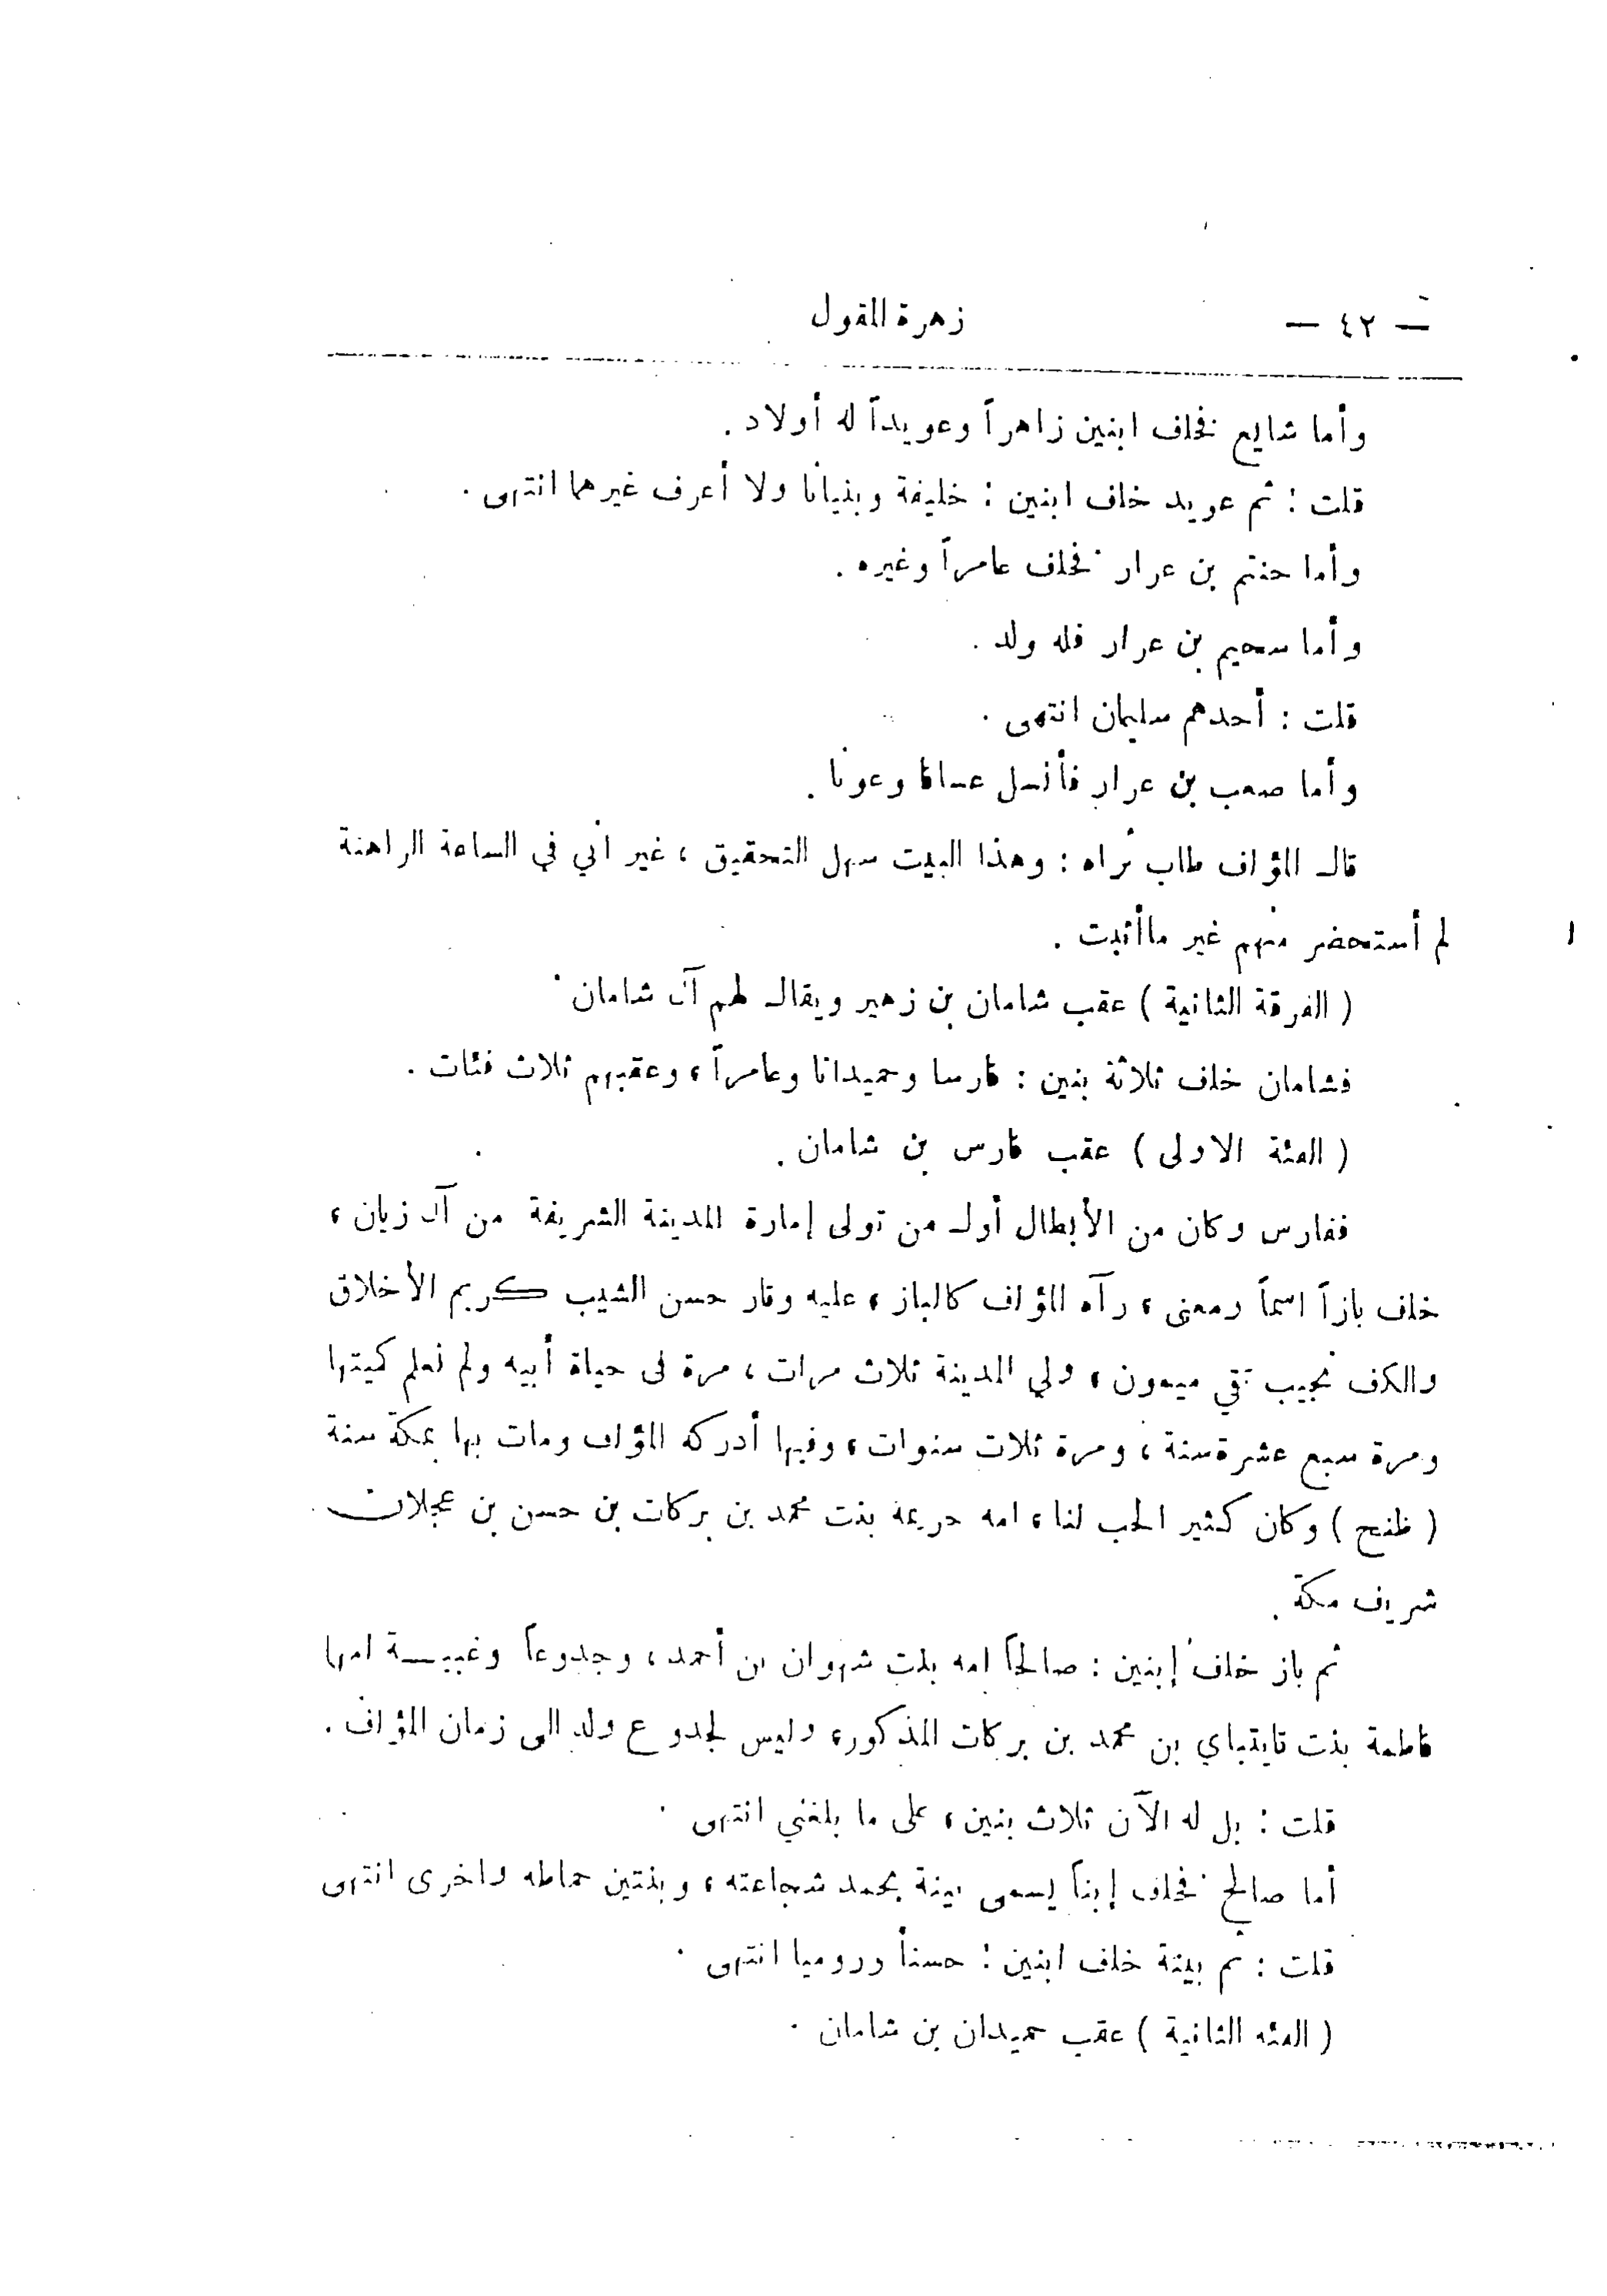 — ٤٢ — زهرة المقول
وأما شايع فخلف ابنين زاهراً وعويداً له أولاد .
قلت : ثم عويد خلف ابنين : خليفة وبنيانا ولا أعرف غيرهما انتهى .
وأما حنتم بن عرار فخلف عامراً وغيره .
وأما سحيم بن عرار فله ولد .
قلت : أحدهم سليمان انتهى .
وأما صعب بن عرار فأنسل عسافا وعونا .
قال المؤلف طاب ثراه : وهذا البيت سهل التحقيق ، غير اني في الساعة الراهنة
لم أستحضر منهم غير ماأثبت .
( الفرقة الثانية ) عقب شامان بن زهير ويقال لهم آل شامان .
فشامان خلف ثلاثة بنين : فارسا وحميدانا وعامراً ، وعقبهم ثلاث فئات .
( الفئة الاولى ) عقب فارس بن شامان .
ففارس وكان من الأبطال أول من تولى إمارة المدينة الشريفة من آل زيان ،
خلف بازاً اسماً ومعنى ، رآه المؤلف كالباز ، عليه وقار حسن الشيب كريم الأخلاق
والكف نجيب تقي ميمون ، ولي المدينة ثلاث مرات ، مرة في حياة أبيه ولم نعلم كميتها
ومرة سبع عشرة سنة ، ومرة ثلاث سنوات ، وفيها أدركه المؤلف ومات بها بمكة سنة
( ظفح ) وكان كثير الحب لنا ، امه حريمة بنت محمد بن بركات بن حسن بن عجلان
شريف مكة .
ثم باز خلف إبنين : صالحاً امه بنت شهوان بن أحمد ، وجدوعاً وغبيـــة امها
فاطمة بنت قايتباي بن محمد بن بركات المذكور ، وليس لجدوع ولد الى زمان المؤلف .
قلت : بل له الآن ثلاث بنين ، على ما بلغني انتهى .
أما صالح فخلف إبناً يسمى بينة بحمد شجاعته ، وبنتين حماطه واخرى انتهى
قلت : ثم بينة خلف ابنين : حسناً وروميا انتهى .
( الفئه الثانية ) عقب حميدان بن شامان .